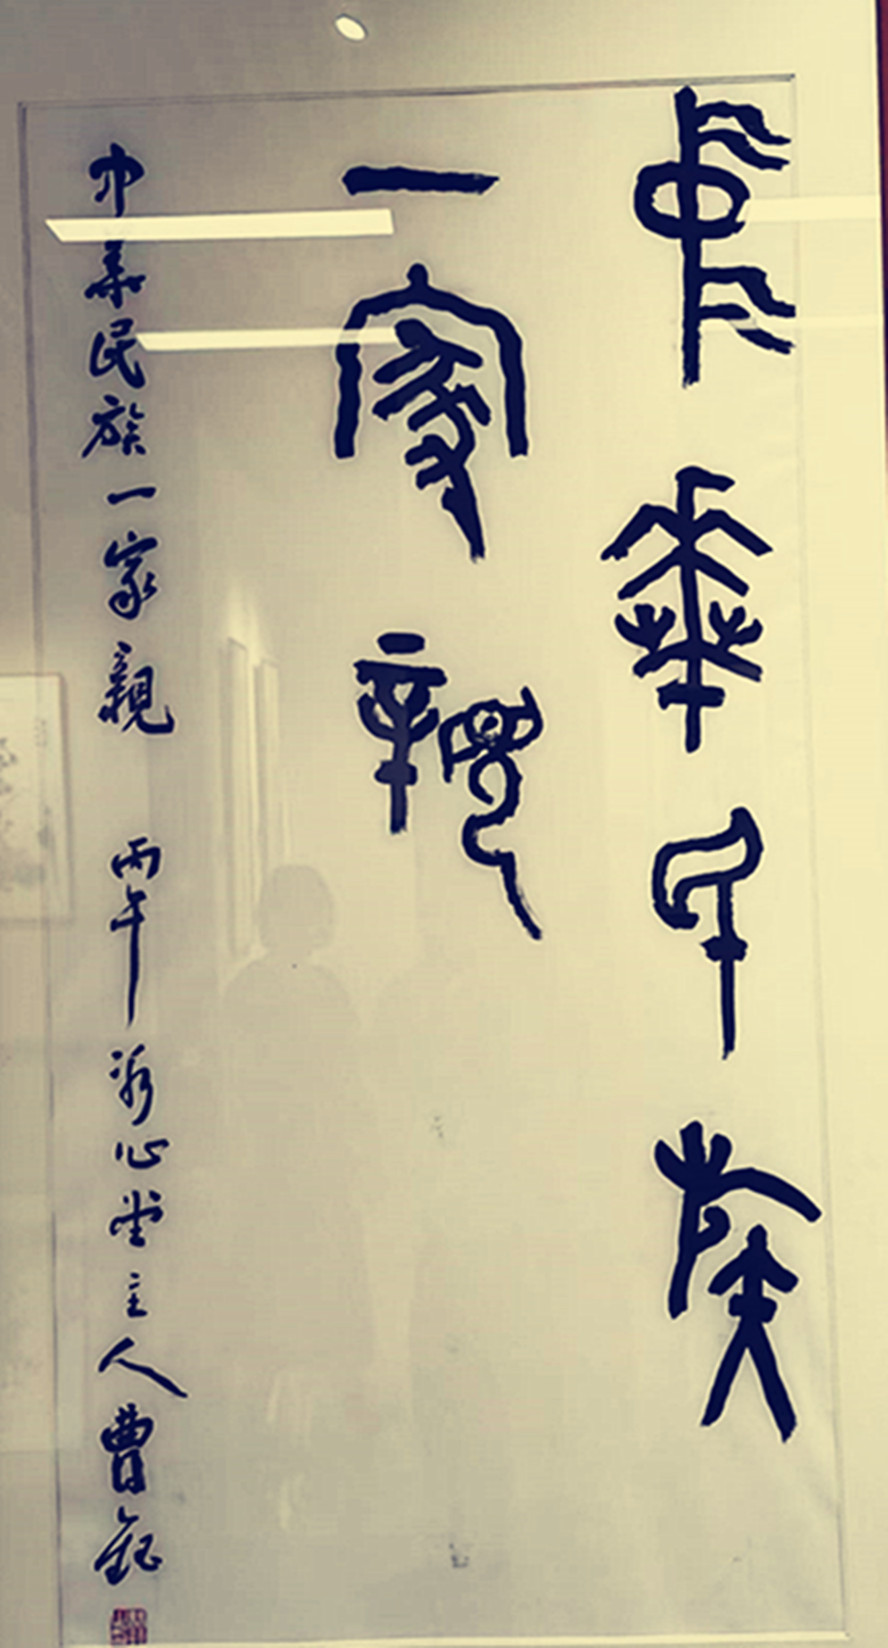 中華民族
一家親
中華民族一家親 丙午 心堂主人曹